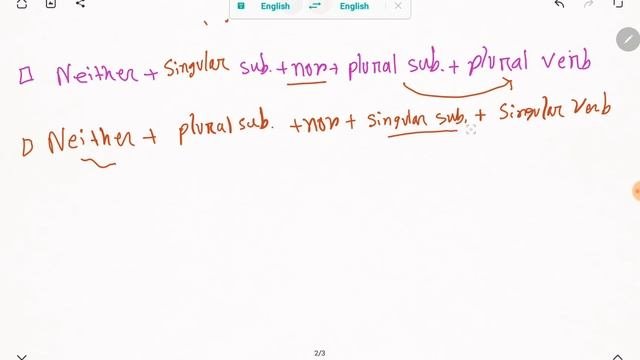 English English
Neither + Singular sub. + nor + plural sub. + plural verb
Neither + plural sub. + nor + singular sub. + Singular Verb
2/3